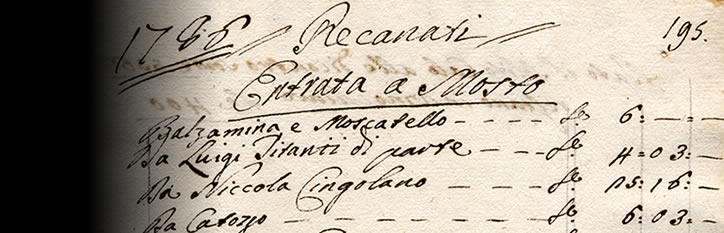 1786 Recanati 195.
Entrata a Mosto
Balzamina e Moscatello - - - - So. 6: — = —
Da Luigi Pitanti di parte - - - So. 4=03: —
Da Niccola Cingolano - - - - So. 15:16: —
Da Catozzo - - - - - - So. 6:03: —